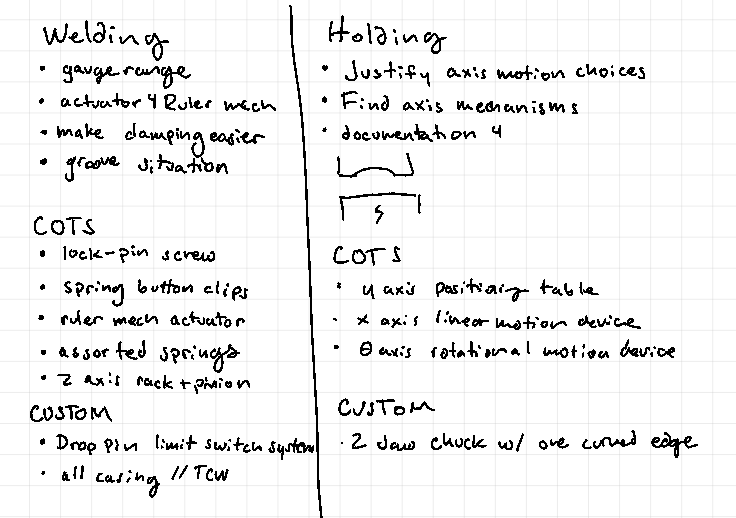 Welding
• gauge range
• actuator 4 Ruler mech
• make clamping easier
• groove situation
COTS
• lock-pin screw
• spring button clips
• ruler mech actuator
• assorted springs
• Z axis rack + pinion
CUSTOM
• Drop pin limit switch system
• all casing // TCW
Holding
• Justify axis motion choices
• Find axis mechanisms
• documentation 4
COTS
• y axis positioning table
• x axis linear motion device
• θ axis rotational motion device
CUSTOM
• 2 Jaw chuck w/ one curved edge